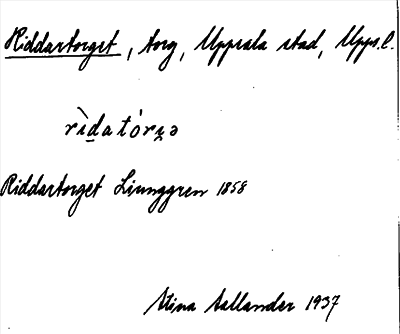 Riddartorget, torg, Uppsala stad, Upps. l.
rìd̲atórʒə
Riddartorget Ljunggren 1858
Stina Sallander 1937